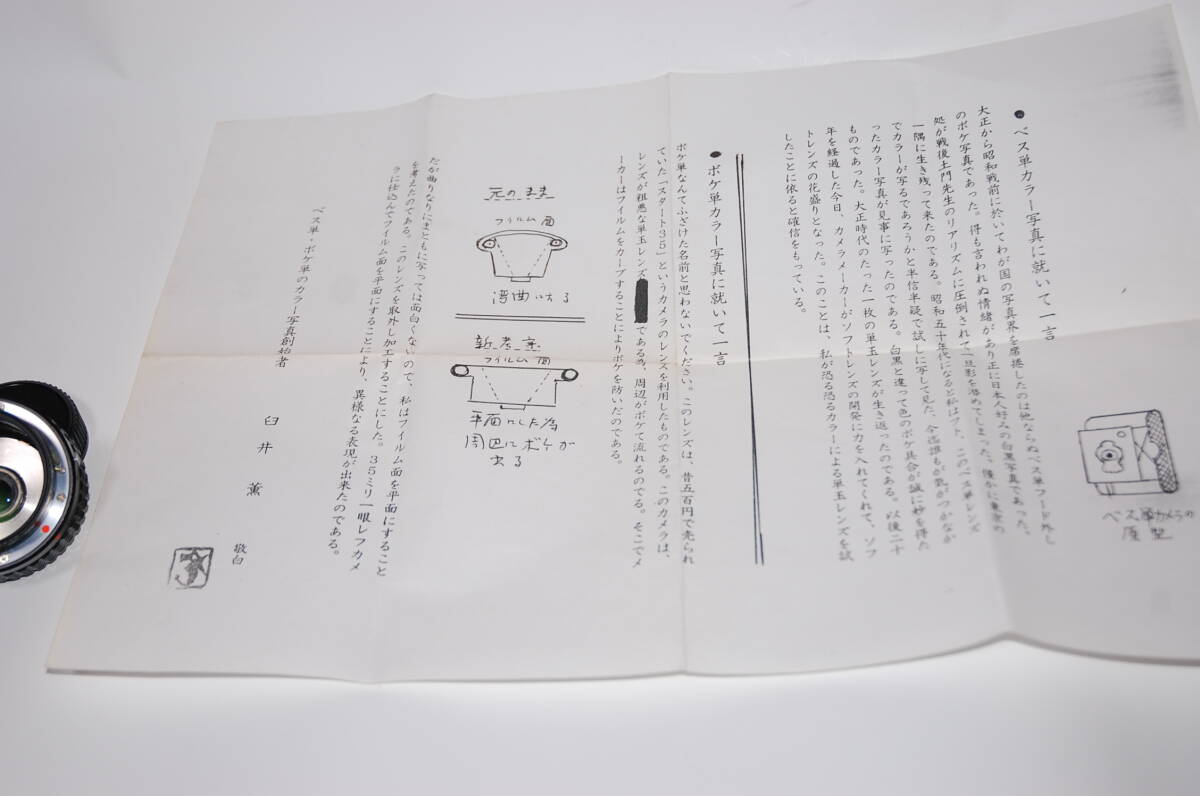 ●ベス単カラー写真に就いて一言
大正から昭和戦前に於いてわが国の写真界を席捲したのは他ならぬベス単フード外し
のボケ写真であった。得も言われぬ情緒があり正に日本人好みの白黒写真であった。
処が戦後土門先生のリアリズムに圧倒されて、影を潜めてしまった。僅かに東京の
一隅に生き残って来たのである。昭和五十年代になると私はフト、このベス単レンズ
でカラーが写るであろうかと半信半疑で試しに写して見た。今迄誰もが気がつかなか
ったカラー写真が見事に写ったのである。白黒と違って色のボケ具合が誠に妙を得た
ものであった。大正時代のたった一枚の単玉レンズが生き返ったのである。以後二十
年を経過した今日、カメラメーカーがソフトレンズの開発に力を入れてくれて、ソフ
トレンズの花盛りとなった。このことは、私が恐る恐るカラーによる単玉レンズを試
したことに依ると確信をもっている。
ベス単カメラの
原型
●ボケ単カラー写真に就いて一言
ボケ単なんてふざけた名前と思わないでください。このレンズは、昔五百円で売られ
ていた「スタート35」というカメラのレンズを利用したものである。このカメラは、
レンズが粗悪な単玉レンズである為、周辺がボケて流れるのでる。そこでメ
ーカーはフイルムをカーブすることによりボケを防いだのである。
元のまま
フイルム面
湾曲にする
新考案
フイルム面
平面にした為
周辺にボケが
出る
だが曲りなりにまともに写っては面白くないので、私はフイルム面を平面にすること
を考えたのである。このレンズを取外し加工することにした。35ミリ一眼レフカメ
ラに仕込んでフイルム面を平面にすることにより、異様なる表現が出来たのである。
ベス単・ボケ単のカラー写真創始者
臼井 薫
敬白